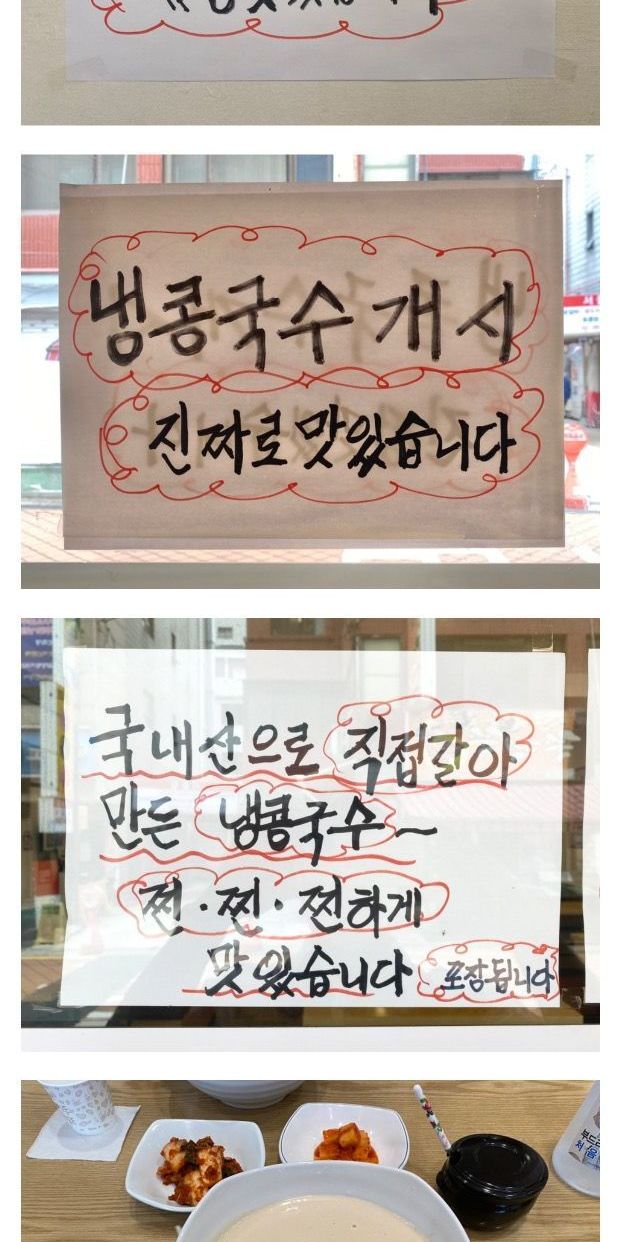 냉콩국수 개시
진짜로 맛있습니다
국내산으로 직접갈아
만든 냉콩국수~
찐·찐·찐하게
맛있습니다 포장됩니다